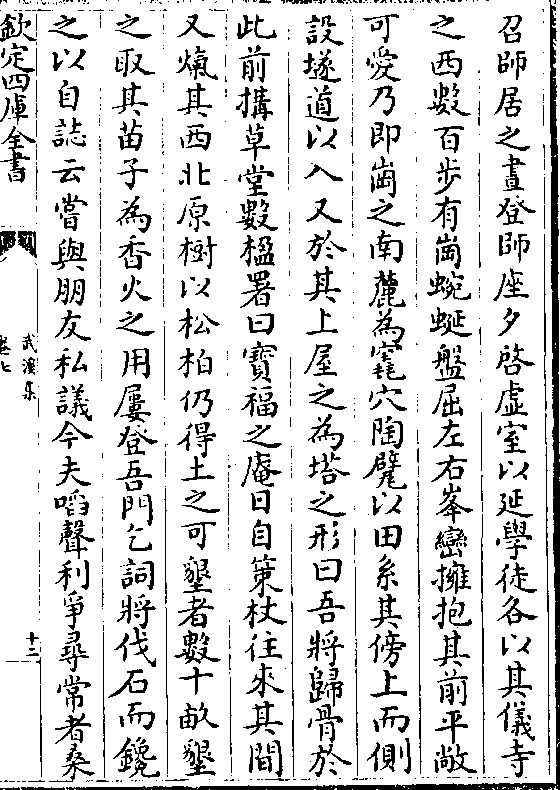 召師居之晝登師座夕啓虛室以延學徒各以其儀寺
之西數百步有崗蜿蜒盤屈左右峯巒擁抱其前平敞
可愛乃即崗之南麓為窀穴陶甓以田系其傍上而側
設墜道以入又於其上屋之為塔之形曰吾將歸骨於
此前搆草堂數楹署曰寶福之庵日自策杖往來其間
又㷼其西北原樹以松柏仍得土之可墾者數十畝墾
之取其苗子為香火之用屢登吾門乞詞將伐石而鑱
之以自誌云嘗與朋友私議今夫啗聲利爭尋常者桑
欽定四庫全書
武溪集
卷七
十二